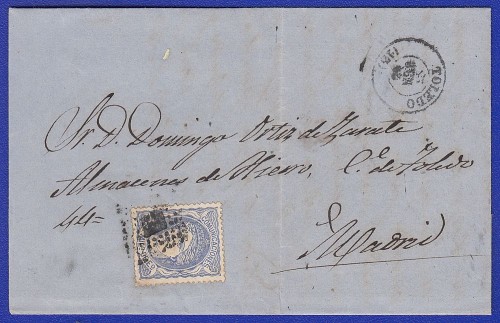 TOLEDO
Sr. D. Domingo Ortiz de Zarate
Almacenes de Hierro, C.e de Toledo
44=
Madrid